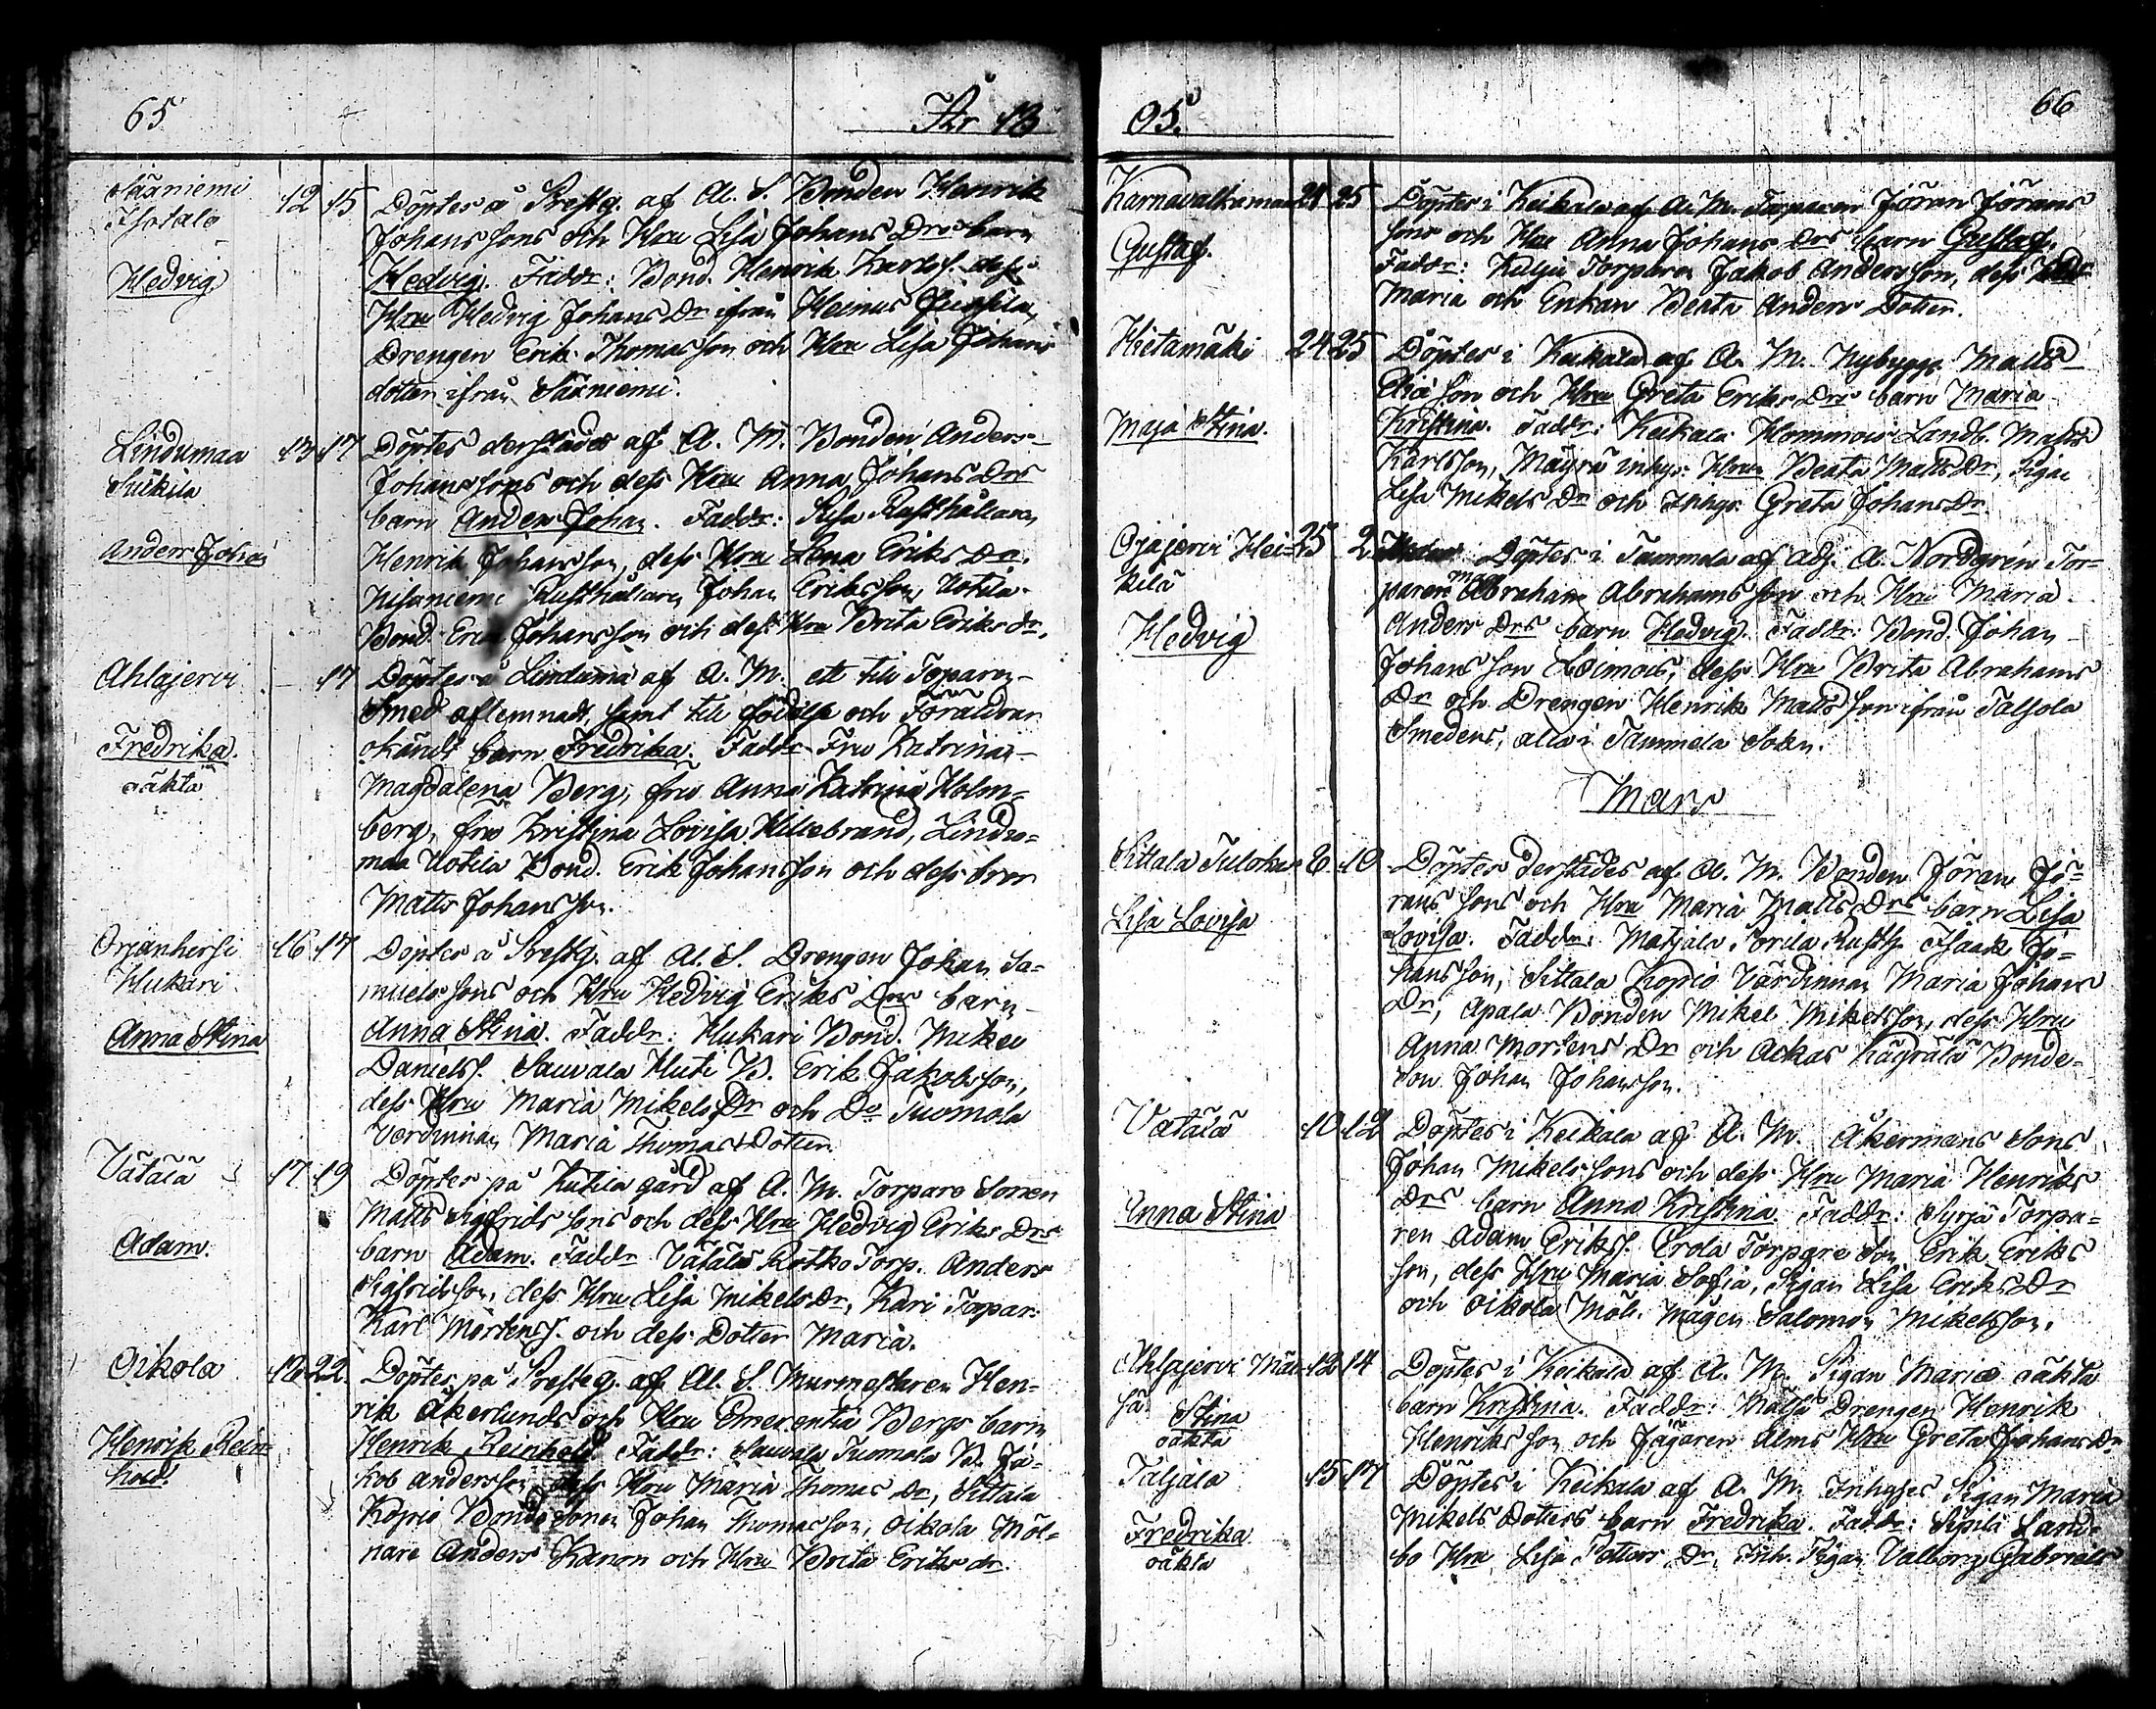 65
År 18
Sääniemi 12 15 Döptes å Prestg. af Al. S. Bonden Henrik
Isotalo Johanssons och Hru Lisa Johans Drs barn
Hedvig Hedvig. Faddr: Bond. Henrik Karlss. dess
Hru Hedvig Johans Dr ifrån Heinus
Drengen Erik Thomasson och Hru Lisa Johans
dotter ifrån Sääniemi.
Lindumaa 13 17 Döptes derstädes af A. M. Bonden Anders
Suikila Johanssons och dess Hru Anna Johans Drs
barn Anders Johan. Faddr: Rusthållaren
Anders Johan Henrik Johansson, dess Hru Lena Eriks Dr.
Nisuniemi Rusthållaren Johan Eriksson, Uotila
Bond. Erik Johansson och dess Hru Brita Eriks dr.
Ahlajervi - 17 Döptes å Linduma af A. M. ett till Torparen
Smed aflemnadt, samt till födelse och Föräldrar
Fredrika. okändt barn Fredrika. Faddr Fru Katrina
oäkta Magdalena Berg, fru Anna Katrina Holm=
berg, fru Kristina Lovisa Hillebrand, Lindu=
maa Uotila Bond. Erik Johansson och dess bror
Matts Johansson.
Orjanhersi 16 17 Döptes å Prestg. af Al. S. Drengen Johan Sa=
Hukari muelssons och Hru Hedvig Eriks Drs barn
Anna Stina Anna Stina. Faddr: Hukari Bond. Mikel
Daniels. Sauvala Huti B. Erik Jakobsson,
dess Hru Maria Mikels Dr och Do Tuomola
Värdinnan Maria Thomas Dotter.
Vätälä 17 19 Döptes på Kutila gård af A. M. Torpare Sonen
Matts Sigfridssons och dess Hru Hedvig Eriks Drs
Adam. barn Adam. Faddr Vätälä Rotko Torp. Anders
Sigfridsson, dess Hru Lisa Mikels Dr, Kari Torpar.
Karl Mårtens. och dess Dotter Maria.
Oikola 18 22 Döptes på Prestg. af Al. S. Murmestaren Hen=
rik Åkerlunds och Hru Emerentia Bergs barn
Henrik Rein= Henrik Reinhold. Faddr: Sauvala Tuomola B. Ja=
hold. kob Andersson, dess Hru Maria Thomas Dr, Sittala
Kopio Bonde Sonen Johan Thomasson, Oikola Möl=
nare Anders Kanon och Hru Brita Eriks dr.
05.
66
Karnavalkaman 24 25 Döptes i Keikala af A. M. Torparen Jöran Jörans
Gustaf. sons och Hru Anna Johans Drs barn Gustaf.
Faddr: Kilju Torparen Jakob Andersson, dess
Maria och Enkan Beata Anders Dotter.
Hietamäki 24 25 Döptes i Keikala af A. M. Nybygg. Matts
son och Hru Greta Eriks Drs barn Maria
Maja Stina. Kristina. Faddr: Keikala Hommois Landb. Matts
Karlsson, Mäyrä inhys: Hru Beata Matts Dr, Pigan
Lisa Mikels Dr och Inhys Greta Johans Dr
Ojajervi Hei= 25 2 Döptes i Tammela af Adj. A. Nordgrén Tor=
kilä parens Abraham Abrahamsson och Hru Maria
Hedvig Anders Drs barn Hedvig. Faddr: Bond. Johan
Johansson Loimois, dess Hru Brita Abrahams
Dr och Drengen Henrik Mattsson ifrån Talsola
Smedens, alla i Tammela Sokn.
Mars
Sittala Tulokas 8 10 Döptes derstädes af A. M. Bonden Jöran Jö=
rans sons och Hru Maria Matts Drs barn Lisa
Lisa Lovisa Lovisa. Faddr: Matjala Rusth. Isaak Jo=
hansson, Sittala Kopio Värdinnan Maria Johans
Dr, Apala Bonden Mikel Mikelsson, dess Hru
Anna Mortens Dr och Ackas Kägrälä Bonde=
son Johan Johansson.
Vätälä 10 12 Döptes i Keikala af A. M. Åkermans Sons
Johan Mikelssons och dess Hru Maria Henriks
Anna Stina Drs barn Anna Kristina. Faddr: Syrjä Torpa=
ren Adam Eriks. Erola Torpare Son Erik Eriks
son, dess Hru Maria Sofia, Pigan Lisa Eriks Dr
och Oikola Möln. Mågen Salomon Mikelsson.
Ahlajervi Män= 12 14 Döptes i Keikala af A. M. Pigan Mariæ oäkta
sä Stina barn Kristina. Faddr: Drengen Henrik
oäkta Henriksson och Jägaren Alms Hru Greta Johans Dr
Taljala 15 17 Döptes i Keikala af A. M. Inhyses Pigan Maria
Fredrika Mikels Dotters barn Fredrika. Faddr: Sipilä Land=
oäkta bo Hru Lisa Petters Dr, Inh. Pigan Valborg Gabriels